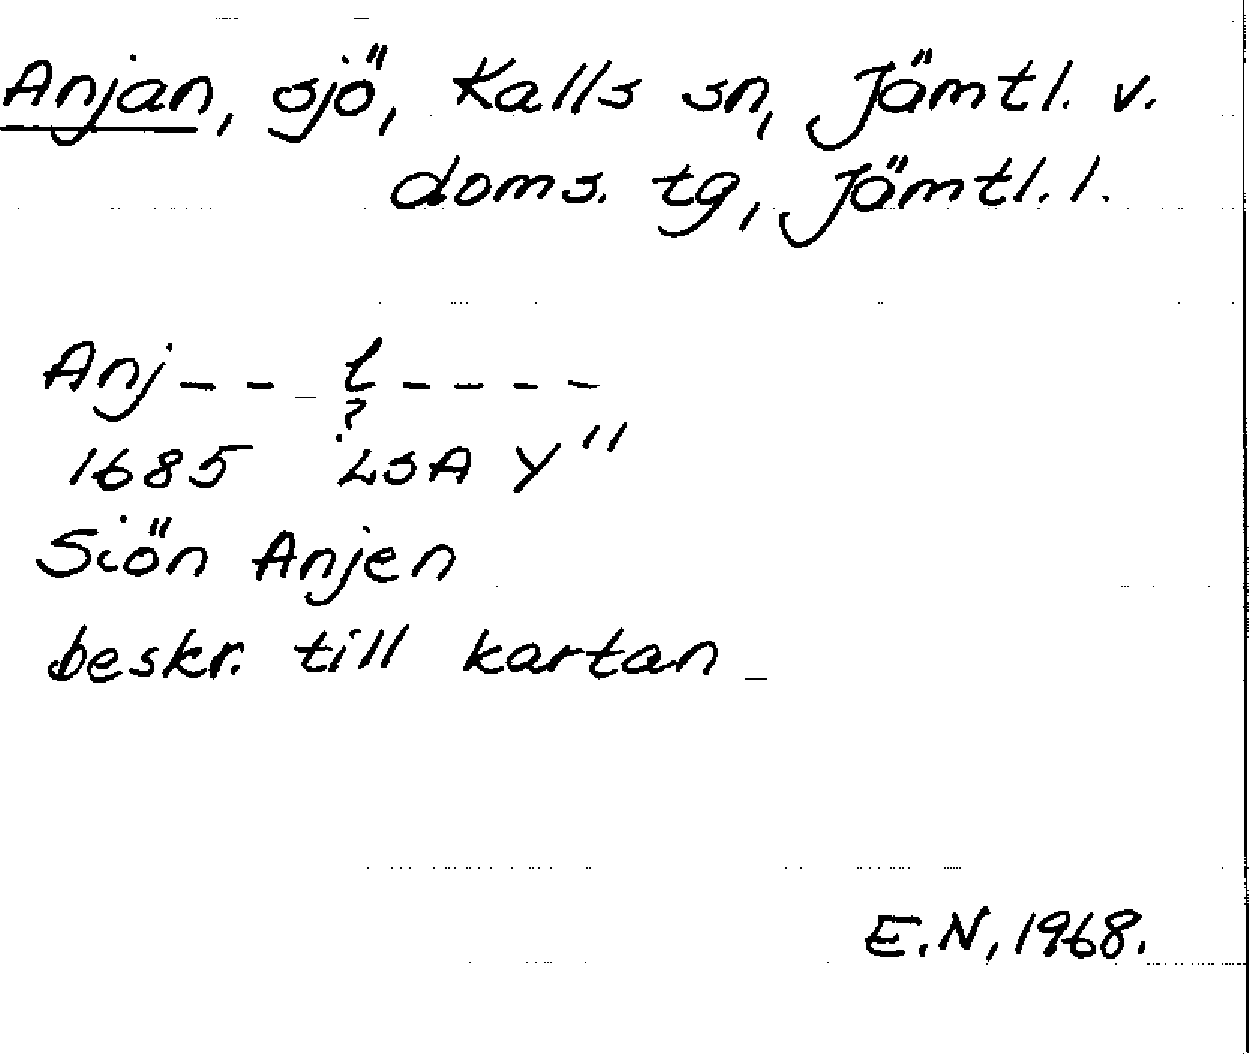 Anjan, sjö, Kalls sn, Jämtl. v.
doms. tg, Jämtl. l.
Anj--_l----
?
1685 LSA Y"
Siön Anjen
beskr. till kartan
E.N, 1968.